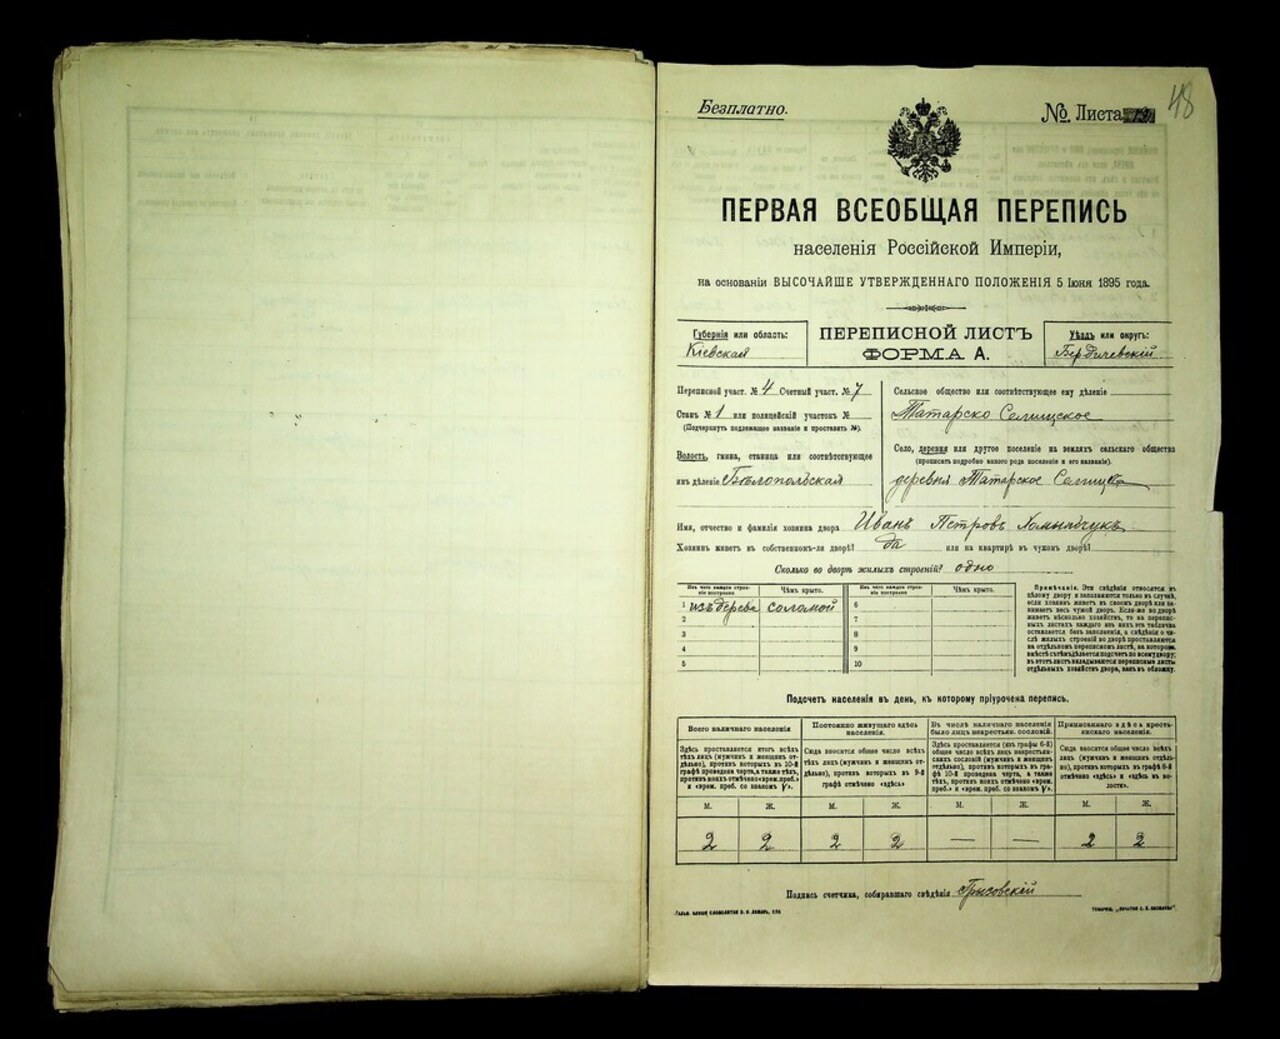 Безплатно.
№ Листа
48
ПЕРВАЯ ВСЕОБЩАЯ ПЕРЕПИСЬ
населенія Россійской Имперіи,
на основаніи ВЫСОЧАЙШЕ УТВЕРЖДЕННАГО ПОЛОЖЕНІЯ 5 Іюня 1895 года.
Губернія или область:
Кіевская
ПЕРЕПИСНОЙ ЛИСТЪ
ФОРМА А.
Уѣздъ или округъ:
Бердичевскій
Переписной участ. № 4 Счетный участ. № 7
Станъ № 1 или полицейскій участокъ №
(Подчеркнуть подлежащее названіе и проставить №).
Волость, гмина, станица или соотвѣтствующее
имъ дѣленіе Бѣлопольская
Сельское общество или соотвѣтствующее ему дѣленіе
Татарско Селищское
Село, деревня или другое поселеніе на земляхъ сельскаго общества
(прописать подробно какого рода поселеніе и его названіе).
деревня Татарское Селище
Имя, отчество и фамилія хозяина двора Иванъ Петровъ
Хозяинъ живетъ въ собственномъ-ли дворѣ? да или на квартирѣ въ чужомъ дворѣ?
Сколько во дворѣ жилыхъ строеній? одно
Изъ чего каждое строеніе построено
Чѣмъ крыто.
Изъ чего каждое строеніе построено
Чѣмъ крыто.
1 изъ дерева соломой 6
2 7
3 8
4 9
5 10
Примѣчаніе. Эти свѣдѣнія относятся къ
цѣлому двору и заполняются только въ случаѣ,
если хозяинъ живетъ въ своемъ дворѣ или занимаетъ
весь чужой дворъ. Если-же во дворѣ
живетъ нѣсколько хозяйствъ, то на переписныхъ
листахъ каждаго изъ нихъ эта табличка
оставляется безъ заполненія, а свѣдѣнія о числѣ
жилыхъ строеній во дворѣ проставляются
на отдѣльномъ переписномъ листѣ, на которомъ
вмѣстѣ съ тѣмъ дѣлается подсчетъ по всему двору;
въ этотъ листъ вкладываются переписные листы
отдѣльныхъ хозяйствъ двора, какъ въ обложку.
Подсчетъ населенія въ день, къ которому пріурочена перепись.
Всего наличнаго населенія
Постоянно живущаго здѣсь населенія.
Въ числѣ наличнаго населенія было лицъ некрестьян. сословій.
Приписаннаго здѣсь крестьянскаго населенія.
Здѣсь проставляется итогъ всѣхъ
тѣхъ лицъ (мужчинъ и женщинъ отдѣльно),
противъ которыхъ въ 10-й
графѣ проведена черта, а также тѣхъ,
противъ коихъ отмѣчено «врем. преб.»
и «врем. преб. со знакомъ V».
Сюда вносится общее число всѣхъ
тѣхъ лицъ (мужчинъ и женщинъ отдѣльно),
противъ которыхъ въ 9-й
графѣ отмѣчено «здѣсь»
Здѣсь проставляется (изъ графы 6-й)
общее число всѣхъ лицъ некрестьянскихъ
сословій (мужчинъ и женщинъ
отдѣльно), противъ которыхъ въ графѣ
10-й проведена черта, а также
тѣхъ, противъ коихъ отмѣчено «врем.
преб.» и «врем. преб. со знакомъ V».
Сюда вносится общее число всѣхъ
лицъ (мужчинъ и женщинъ отдѣльно),
противъ которыхъ въ графѣ 8-й
отмѣчено «здѣсь» и «здѣсь въ волости».
М. Ж. М. Ж. М. Ж. М. Ж.
2 2 2 2 — — 2 2
Подпись счетчика, собиравшаго свѣдѣнія